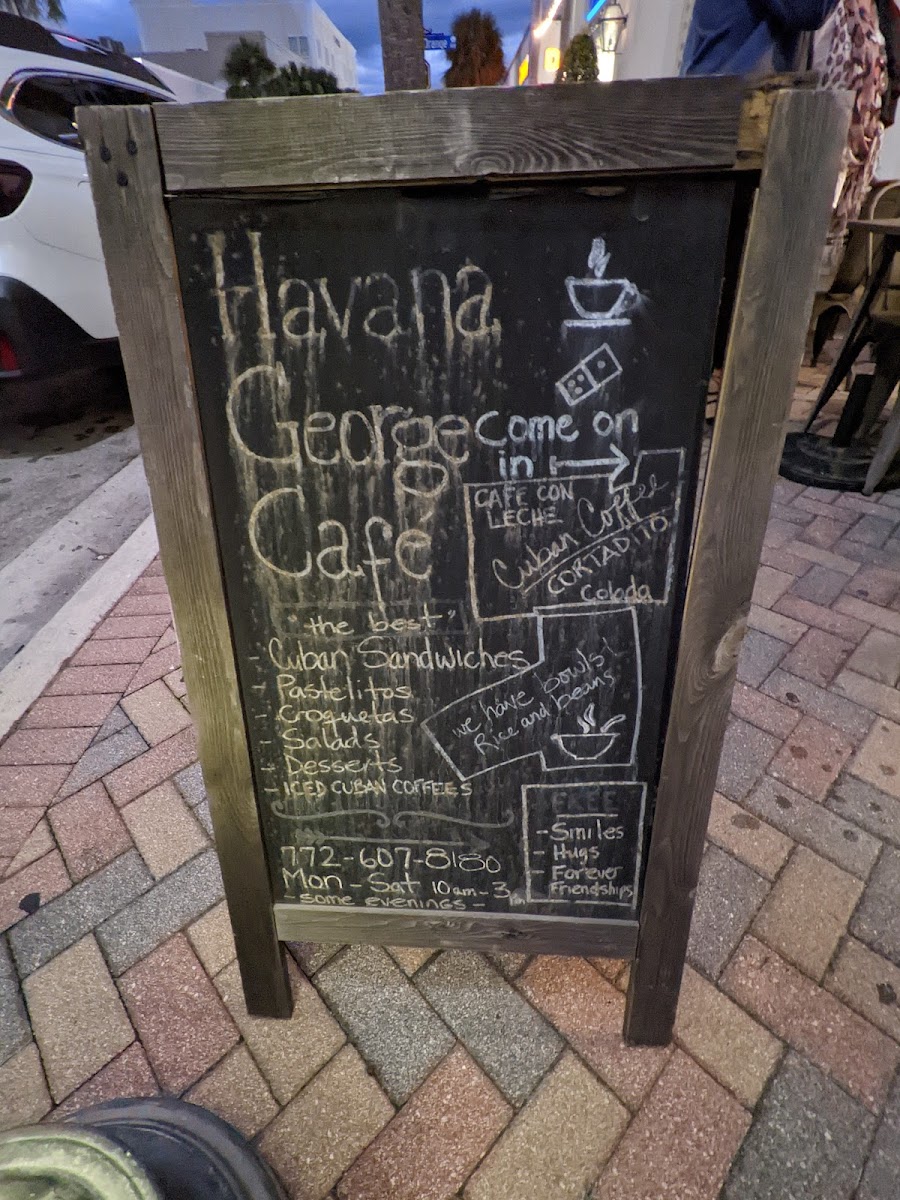 Havana
George
Café
come on
in
CAFE CON
LECHE
Cuban Coffee
CORTADITO
Colada
"the best"
- Cuban Sandwiches
- Pastelitos
- Croquetas
- Salads
- Desserts
- ICED CUBAN COFFEES
we have bowls!
Rice and beans
FREE
- Smiles
- Hugs
- Forever
Friendships
772-607-8180
Mon - Sat 10am - 3pm
- some evenings -